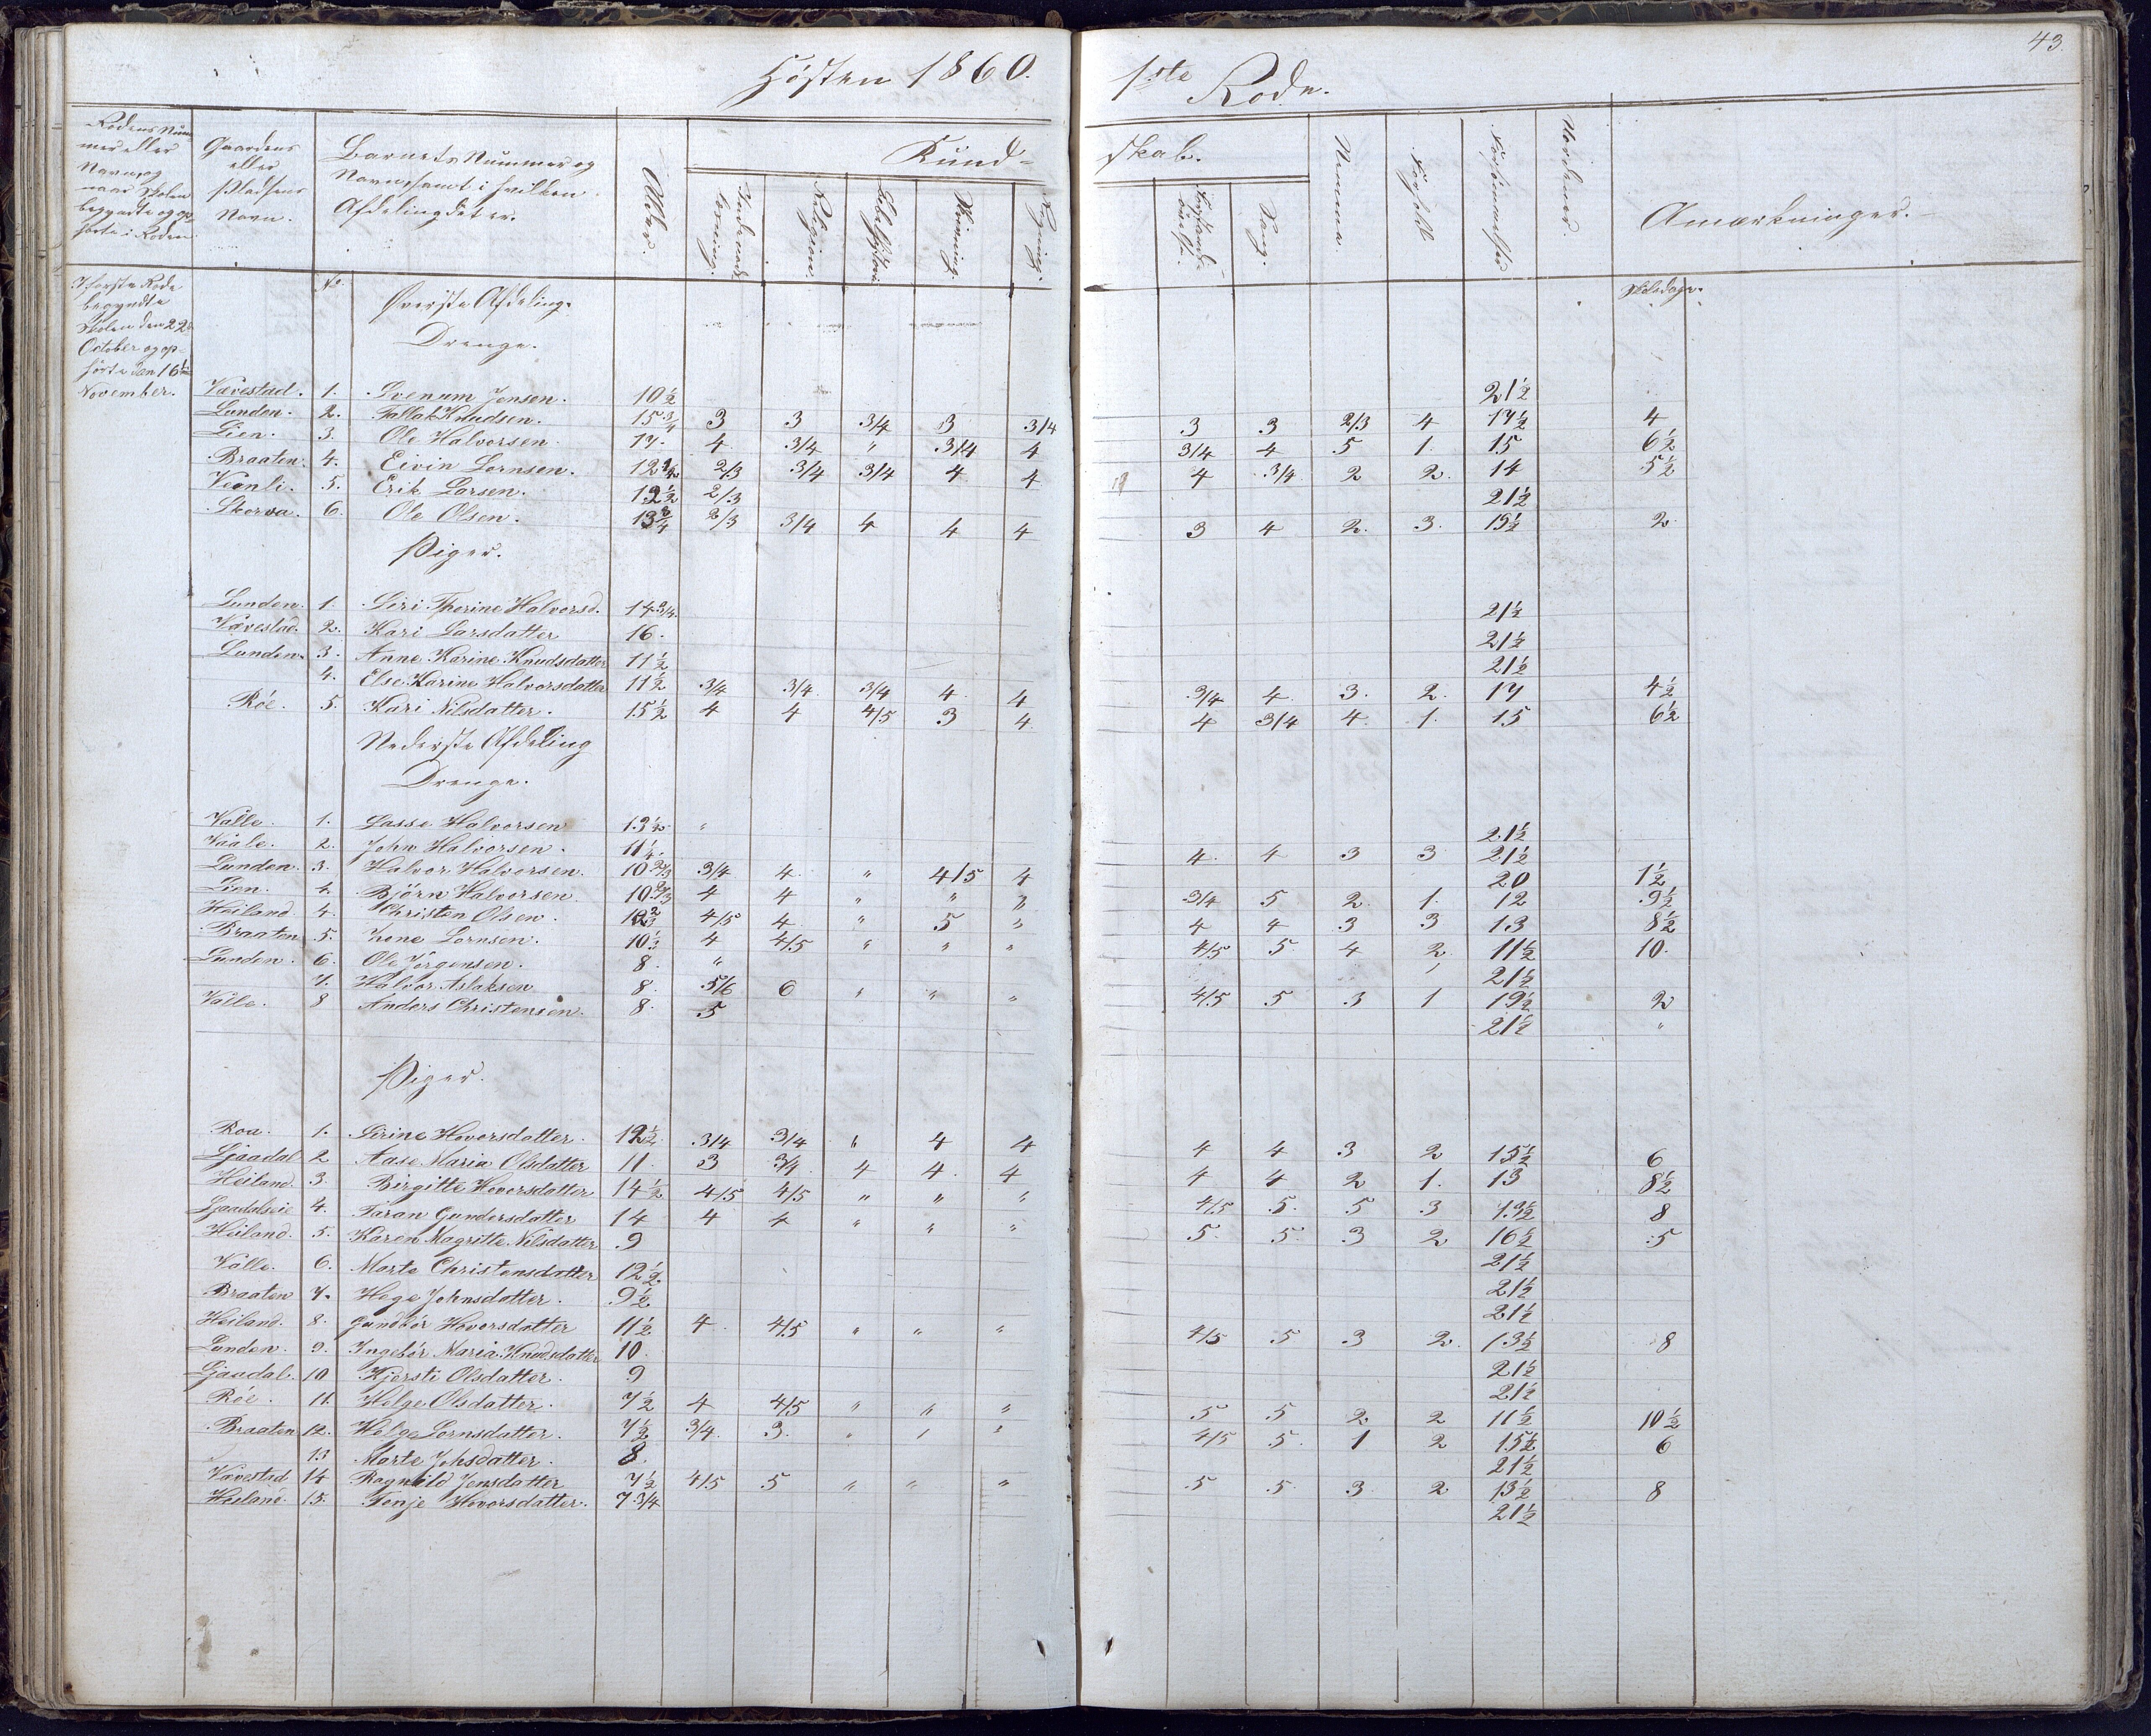 43.
Høsten 1860.
1ste Rode.
Rodens Nummer eller Navn, og naar Skolen begyndte og ophørte i Roden.
Gaardens eller Pladsens Navn.
Barnets Nummer og Navn, samt i hvilken Afdeling det er.
Alder.
Kundskab.
Indenadslæsning.
Religion.
Bibelhistorie
Skrivning.
Regning.
Sang.
Nemme
Forhold
Forsømmelser
Anmærkninger.
I første Rode begyndte Skolen den 22 October og ophørte den 16 November.
No.
Øverste Afdeling.
Skoledage.
Drenge.
Vævestad. 1. Svenum Jensen. 10½ 21½
Lunden. 2. Tallak Knudsen. 15¾ 3 3 3/4 3 3/4 3 3 2/3 4 17½ 4
Lien. 3. Ole Halvorsen. 17. 4 3/4 " 3/4 4 3/4 4 5 1. 15 6½
Braaten. 4. Eivin Lornsen. 12½ 2/3 3/4 3/4 4 4 4 3/4 2 2. 14 5½
Veanli. 5. Erik Larsen. 12½ 2/3 21½
Skorva. 6. Ole Olsen. 13¾ 2/3 3/4 4 4 4 3 4 2. 3. 19½ 2
Piger.
Lunden. 1. Siri Therine Halvorsd. 14 3/4. 21½
Vævestad. 2. Kari Larsdatter 16. 21½
Lunden. 3. Anne Karine Knudsdatter 11½ 21½
4. Else Karine Halvorsdatter 11½ 3/4 3/4 3/4 4 4 3/4 4. 3. 2. 17 4½
Róe. 5. Kari Nilsdatter. 15½ 4 4 4/5 3 4 4 3/4 4. 1. 15 6½
Nederste Afdeling
Drenge.
Valle. 1. Lasse Halvorsen 13½ " 21½
Vaale. 2. John Halvorsen. 11¼. 4. 4 3 3 21½
Lunden. 3. Halvor Halvorsen. 10 2/3 3/4 4. " 4/5 4 20 1½
Lien. 4. Bjørn Halvorsen. 10 2/3 4 4 " " " 3/4 5 2. 1. 12 9½
Heiland. 4. Christen Olsen. 4/5 4 " 5 " 4 4 3 3 13 8½
Braaten 5. Lornsen. 10½ 4 4/5 " " " 4/5 5. 4 2 11½ 10.
Lunden. 6. Ole Jørgensen. 8. " 21½
7. Halvor Aslaksen 8. 5/6 6 " " " 4/5 5 3 1 19½ 2
Valle. 8 Anders Christensen. 8. 5 21½ "
Piger.
Roa. 1. Sirine Hovorsdatter. 12½ 3/4 3/4 " 4 4 4 4 3 2 15½ 6
Ljaadal 2 Aase Maria Olsdatter 11. 3 3/4 4 4. 4 4 4 2 1. 13 8½
Heiland 3. Birgitte Hovorsdatter 14½ 4/5 4/5 " " " 4/5 5. 5 3 13½ 8
Ljaadalseie 4. Taran Gundersdatter 14 4 4 " " " 5. 5. 3 2 16½ 5
Heiland. 5. Karen Magritte Nilsdatter 9 21½
Valle. 6. Marte Christensdatter 12½. 21½
Braaten 7. Hege Johnsdatter. 9½ 21½
Heiland. 8. Gundbór Hovorsdatter 11½ 4. 4/5 " " " 4/5 5 3 2. 13½ 8
Lunden. 9. Ingebór Maria Knudsdatter 10. 21½
Ljaadal. 10 Kjersti Olsdatter. 9 21½
Róe. 11. Helge Olsdatter. 7½ 4 4/5 " " " 5 5 2 2 11½ 10½
Braaten 12. Helge Lornsdatter. 7½ 3/4. 3. " " " 4/5 5. 1 2 15½ 6
13 Marte Johsdatter. 8. 21½
Vævestad 14 Ragnild Jensdatter 7½ 4/5 5 " " " 5 5. 3. 2 13½ 8
Heiland. 15. Tonje Hovorsdatter. 7 3/4 21½